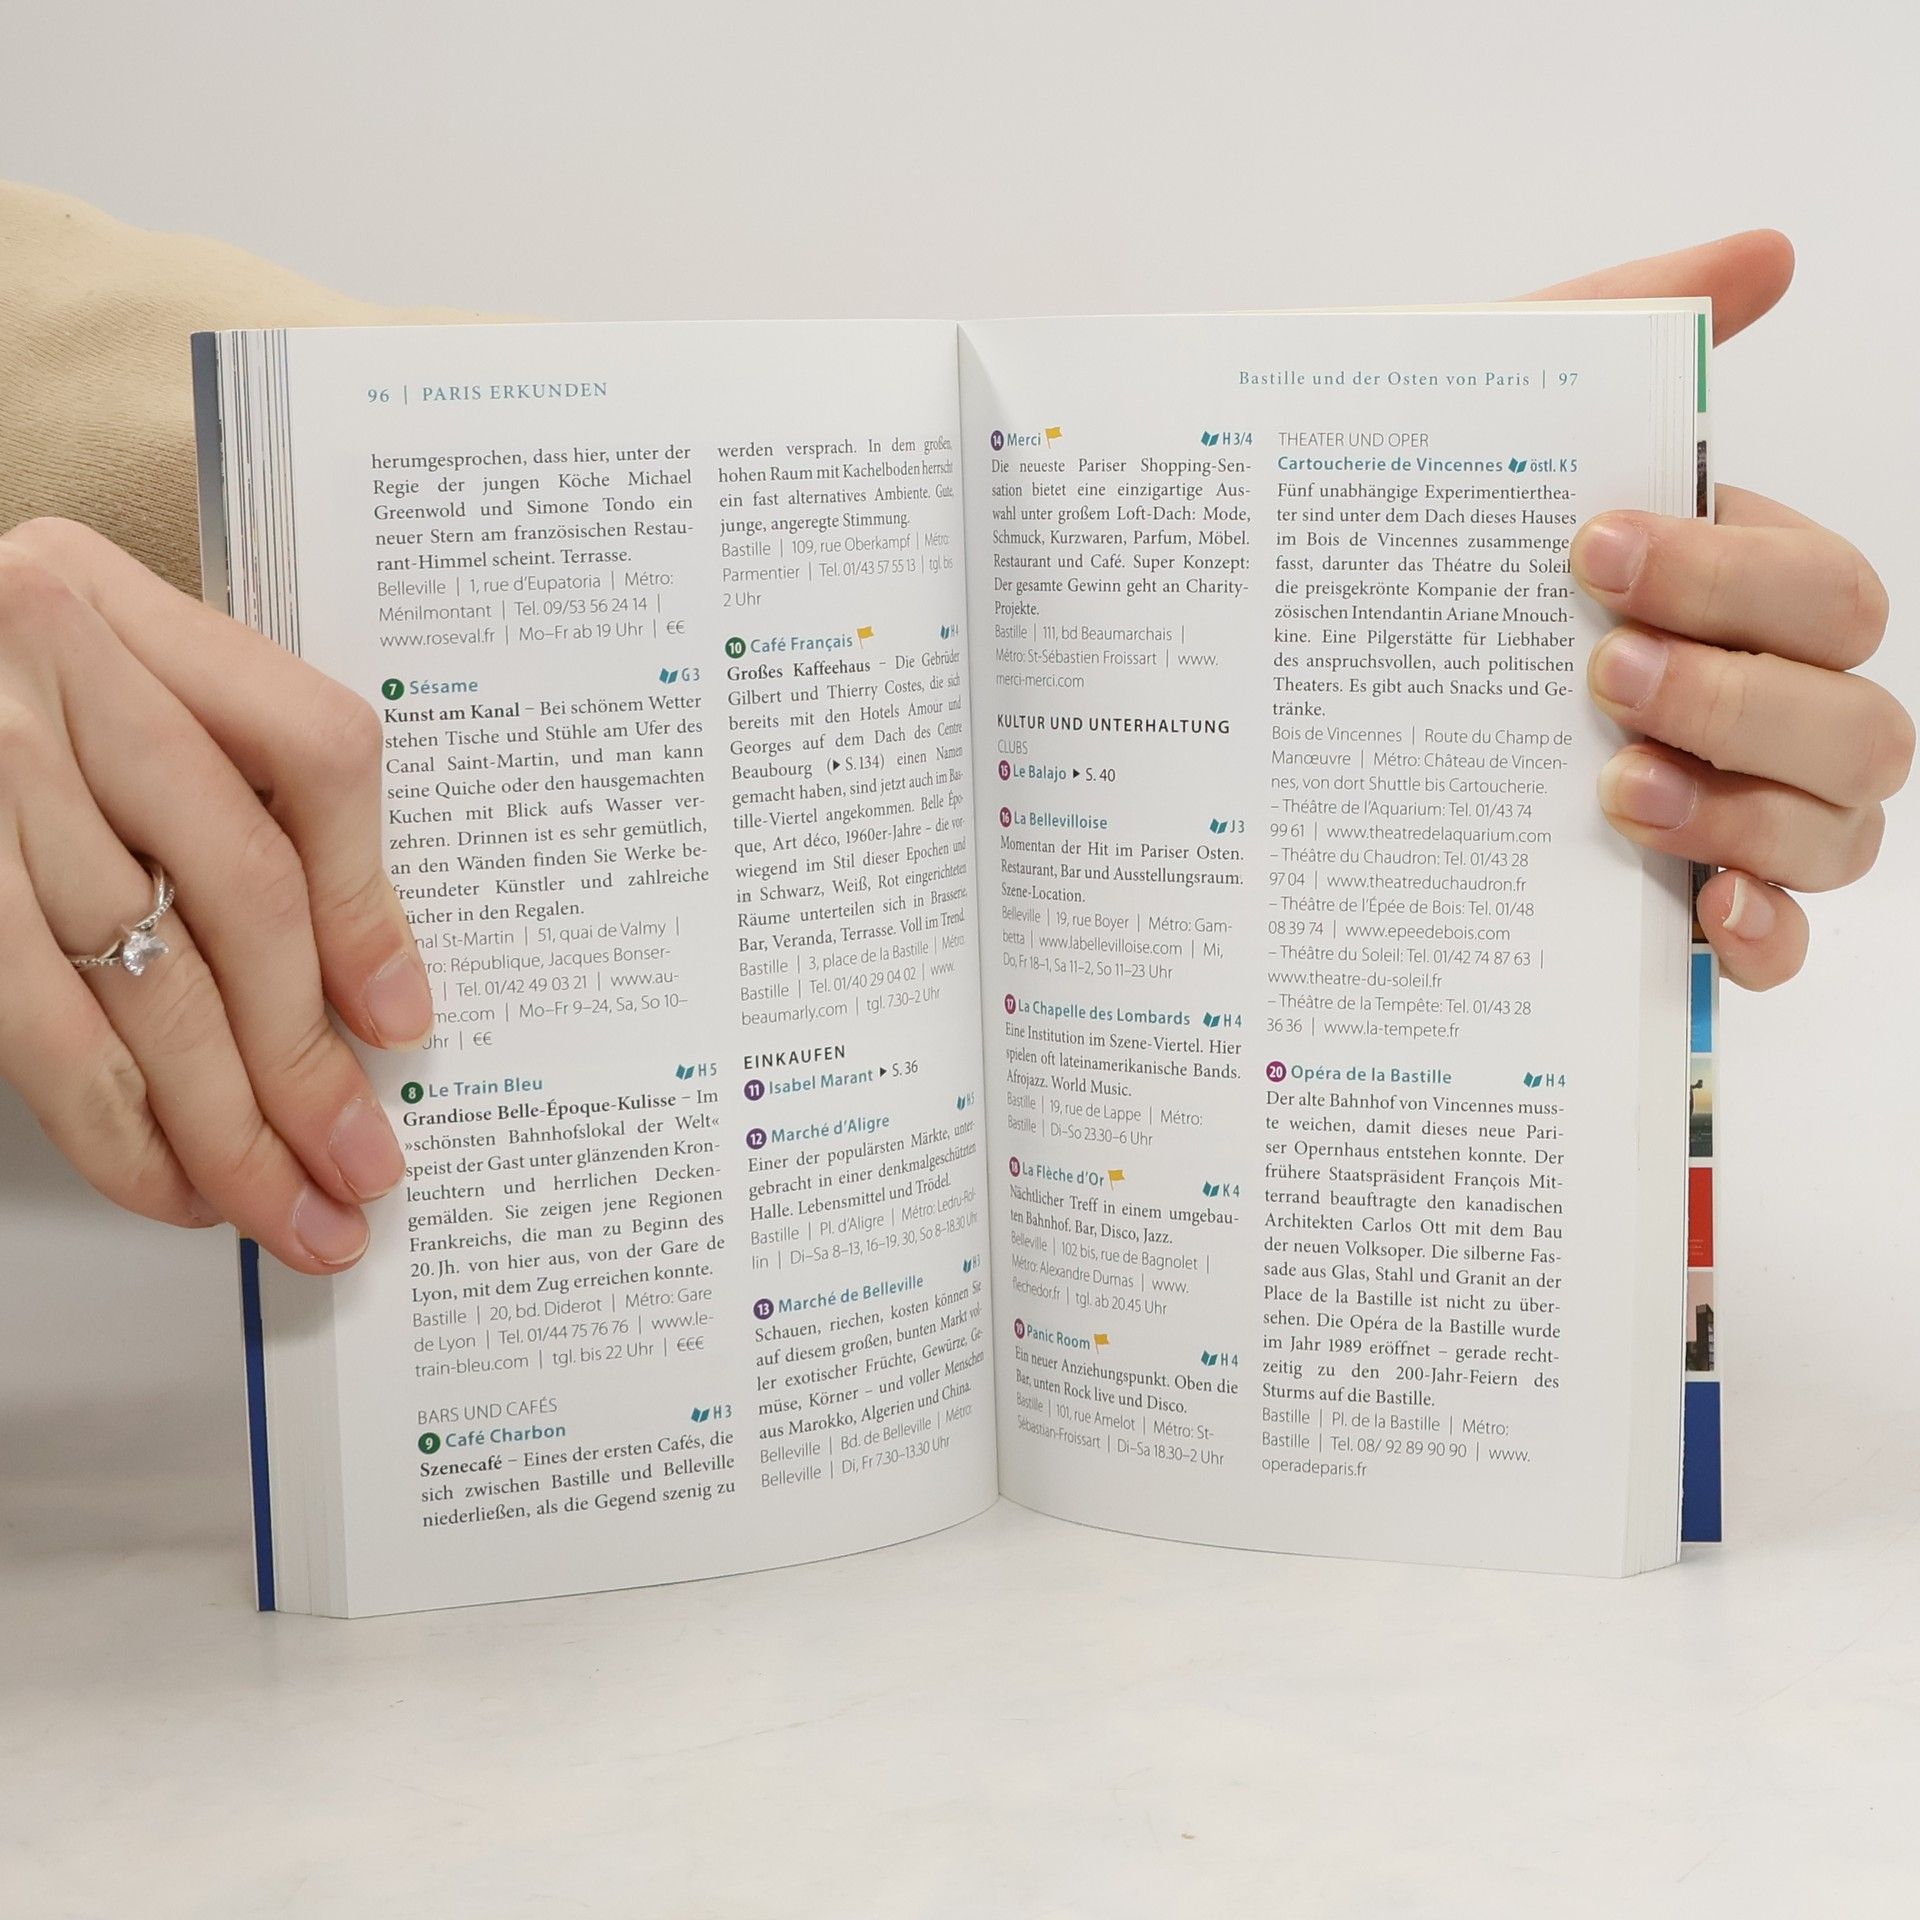 96 | PARIS ERKUNDEN
herumgesprochen, dass hier, unter der
Regie der jungen Köche Michael
Greenwold und Simone Tondo ein
neuer Stern am französischen Restau-
rant-Himmel scheint. Terrasse.
Belleville | 1, rue d'Eupatoria | Métro:
Ménilmontant | Tel. 09/53 56 24 14 |
www.roseval.fr | Mo–Fr ab 19 Uhr | €€
7 Sésame G 3
Kunst am Kanal – Bei schönem Wetter
stehen Tische und Stühle am Ufer des
Canal Saint-Martin, und man kann
seine Quiche oder den hausgemachten
Kuchen mit Blick aufs Wasser ver-
zehren. Drinnen ist es sehr gemütlich,
an den Wänden finden Sie Werke be-
freundeter Künstler und zahlreiche
ücher in den Regalen.
nal St-Martin | 51, quai de Valmy |
ro: République, Jacques Bonser-
| Tel. 01/42 49 03 21 | www.au-
me.com | Mo–Fr 9–24, Sa, So 10–
Uhr | €€
8 Le Train Bleu H 5
Grandiose Belle-Époque-Kulisse – Im
»schönsten Bahnhofslokal der Welt«
speist der Gast unter glänzenden Kron-
leuchtern und herrlichen Decken-
gemälden. Sie zeigen jene Regionen
Frankreichs, die man zu Beginn des
20. Jh. von hier aus, von der Gare de
Lyon, mit dem Zug erreichen konnte.
Bastille | 20, bd. Diderot | Métro: Gare
de Lyon | Tel. 01/44 75 76 76 | www.le-
train-bleu.com | tgl. bis 22 Uhr | €€€
BARS UND CAFÉS
9 Café Charbon H 3
Szenecafé – Eines der ersten Cafés, die
sich zwischen Bastille und Belleville
niederließen, als die Gegend szenig zu
werden versprach. In dem großen,
hohen Raum mit Kachelboden herrscht
ein fast alternatives Ambiente. Gute,
junge, angeregte Stimmung.
Bastille | 109, rue Oberkampf | Métro:
Parmentier | Tel. 01/43 57 55 13 | tgl. bis
2 Uhr
10 Café Français H 4
Großes Kaffeehaus – Die Gebrüder
Gilbert und Thierry Costes, die sich
bereits mit den Hotels Amour und
Georges auf dem Dach des Centre
Beaubourg (▶ S. 134) einen Namen
gemacht haben, sind jetzt auch im Bas-
tille-Viertel angekommen. Belle Épo-
que, Art déco, 1960er-Jahre – die vor-
wiegend im Stil dieser Epochen und
in Schwarz, Weiß, Rot eingerichteten
Räume unterteilen sich in Brasserie,
Bar, Veranda, Terrasse. Voll im Trend.
Bastille | 3, place de la Bastille | Métro:
Bastille | Tel. 01/40 29 04 02 | www.
beaumarly.com | tgl. 7.30–2 Uhr
EINKAUFEN
11 Isabel Marant ▶ S. 36
12 Marché d'Aligre H 5
Einer der populärsten Märkte, unter-
gebracht in einer denkmalgeschützten
Halle. Lebensmittel und Trödel.
Bastille | Pl. d'Aligre | Métro: Ledru-Rol-
lin | Di–Sa 8–13, 16–19.30, So 8–18.30 Uhr
13 Marché de Belleville H 3
Schauen, riechen, kosten können Sie
auf diesem großen, bunten Markt vol-
ler exotischer Früchte, Gewürze, Ge-
müse, Körner – und voller Menschen
aus Marokko, Algerien und China.
Belleville | Bd. de Belleville | Métro:
Belleville | Di, Fr 7.30–13.30 Uhr
Bastille und der Osten von Paris | 97
14 Merci H 3/4
Die neueste Pariser Shopping-Sen-
sation bietet eine einzigartige Aus-
wahl unter großem Loft-Dach: Mode,
Schmuck, Kurzwaren, Parfum, Möbel.
Restaurant und Café. Super Konzept:
Der gesamte Gewinn geht an Charity-
Projekte.
Bastille | 111, bd Beaumarchais |
Métro: St-Sébastien Froissart | www.
merci-merci.com
KULTUR UND UNTERHALTUNG
CLUBS
15 Le Balajo ▶ S. 40
16 La Bellevilloise J 3
Momentan der Hit im Pariser Osten.
Restaurant, Bar und Ausstellungsraum.
Szene-Location.
Belleville | 19, rue Boyer | Métro: Gam-
betta | www.labellevilloise.com | Mi,
Do, Fr 18–1, Sa 11–2, So 11–23 Uhr
17 La Chapelle des Lombards H 4
Eine Institution im Szene-Viertel. Hier
spielen oft lateinamerikanische Bands.
Afrojazz. World Music.
Bastille | 19, rue de Lappe | Métro:
Bastille | Di–So 23.30–6 Uhr
18 La Flèche d'Or K 4
Nächtlicher Treff in einem umgebau-
ten Bahnhof. Bar, Disco, Jazz.
Belleville | 102 bis, rue de Bagnolet |
Métro: Alexandre Dumas | www.
flechedor.fr | tgl. ab 20.45 Uhr
19 Panic Room H 4
Ein neuer Anziehungspunkt. Oben die
Bar, unten Rock live und Disco.
Bastille | 101, rue Amelot | Métro: St-
Sébastian-Froissart | Di–Sa 18.30–2 Uhr
THEATER UND OPER
Cartoucherie de Vincennes östl. K 5
Fünf unabhängige Experimentierthea-
ter sind unter dem Dach dieses Hauses
im Bois de Vincennes zusammenge-
fasst, darunter das Théatre du Soleil
die preisgekrönte Kompanie der fran-
zösischen Intendantin Ariane Mnouch-
kine. Eine Pilgerstätte für Liebhaber
des anspruchsvollen, auch politischen
Theaters. Es gibt auch Snacks und Ge-
tränke.
Bois de Vincennes | Route du Champ de
Manœuvre | Métro: Château de Vincen-
nes, von dort Shuttle bis Cartoucherie.
– Théâtre de l'Aquarium: Tel. 01/43 74
99 61 | www.theatredelaquarium.com
– Théâtre du Chaudron: Tel. 01/43 28
97 04 | www.theatreduchaudron.fr
– Théâtre de l'Épée de Bois: Tel. 01/48
08 39 74 | www.epeedebois.com
– Théâtre du Soleil: Tel. 01/42 74 87 63 |
www.theatre-du-soleil.fr
– Théâtre de la Tempête: Tel. 01/43 28
36 36 | www.la-tempete.fr
20 Opéra de la Bastille H 4
Der alte Bahnhof von Vincennes muss-
te weichen, damit dieses neue Pari-
ser Opernhaus entstehen konnte. Der
frühere Staatspräsident François Mit-
terrand beauftragte den kanadischen
Architekten Carlos Ott mit dem Bau
der neuen Volksoper. Die silberne Fas-
sade aus Glas, Stahl und Granit an der
Place de la Bastille ist nicht zu über-
sehen. Die Opéra de la Bastille wurde
im Jahr 1989 eröffnet – gerade recht-
zeitig zu den 200-Jahr-Feiern des
Sturms auf die Bastille.
Bastille | Pl. de la Bastille | Métro:
Bastille | Tel. 08/ 92 89 90 90 | www.
operadeparis.fr